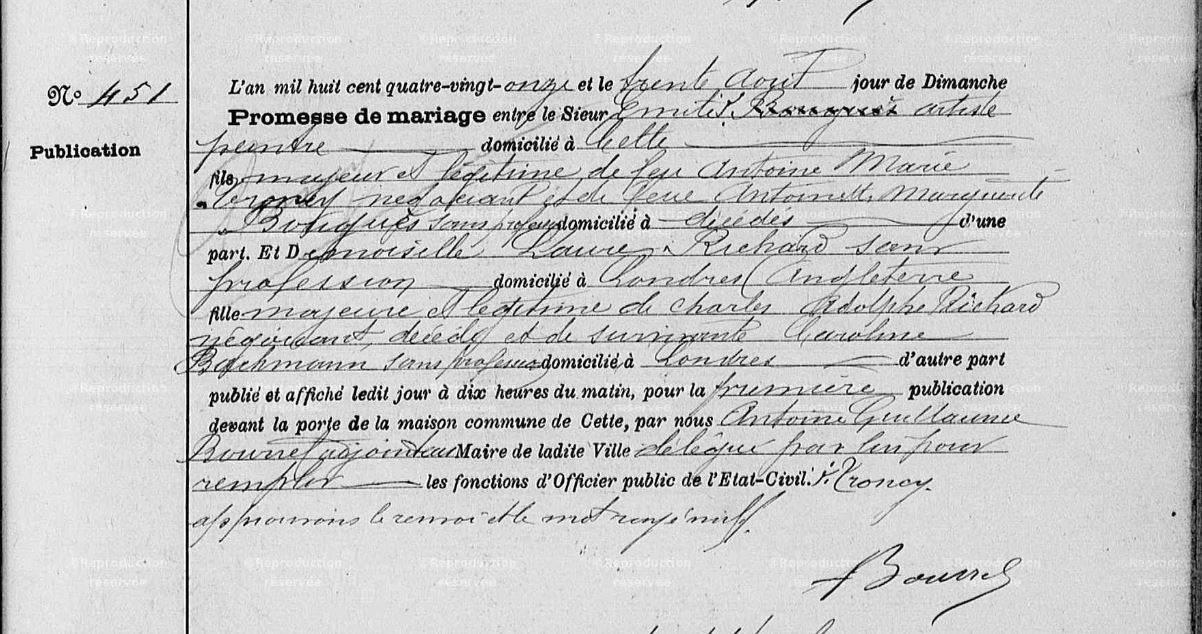 Nº 451
Publication
L'an mil huit cent quatre-vingt-onze et le trente Août jour de Dimanche
Promesse de mariage entre le Sieur Emile ƒ. Bouquès artiste
peintre domicilié à Cette
fils majeur et légitime de feu Antoine Marie
Troncy négociant et de feue Antoinette Marguerite
Bouquès sans profess domicilié à décédés d'une
part. Et Demoiselle Laure Richard sans
profession domicilié à Londres (Angleterre
fille majeure et légitime de Charles Adolphe Richard
négociant, décédé et de survivante Caroline
Bachmann sans profession domicilié à Londres d'autre part
publié et affiché ledit jour à dix heures du matin, pour la première publication
devant la porte de la maison commune de Cette, par nous Antoine Guillaume
Bourrel adjoint au Maire de ladite Ville délégué par lui pour
remplir les fonctions d'Officier public de l'Etat-Civil. ƒ. Troncy.
approuvons le renvoi et le mot rayé nul.
Bourrel
© Reproduction réservée